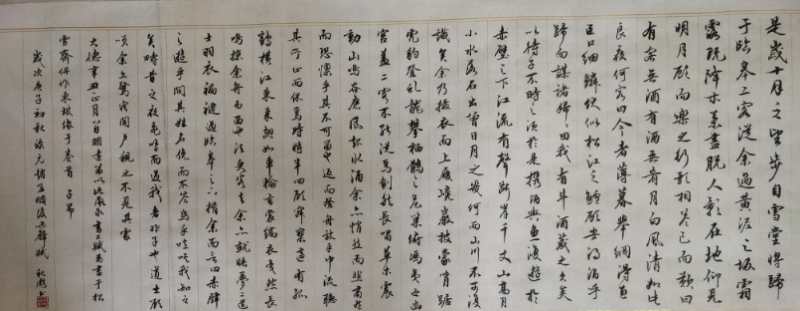 是歲十月之望步自雪堂將歸
于臨皋二客從余過黃泥之坂霜
露既降木葉盡脫人影在地仰見
明月顧而樂之行歌相答已而歎曰
有客無酒有酒無肴月白風清如此
良夜何客曰今者薄暮舉網得魚
巨口細鱗狀似松江之鱸顧安所得酒乎
歸而謀諸婦婦曰我有斗酒藏之久矣
以待子不時之須於是攜酒與魚復遊於
赤壁之下江流有聲斷岸千尺山高月
小水落石出曾日月之幾何而山川不可復
識矣余乃攝衣而上履巉巖披蒙茸踞
虎豹登虬龍攀栖鶻之危巢俯馮夷之幽
宮蓋二客不能從焉劃然長嘯草木震
動山鳴谷應風起水涌余亦悄然而悲肅然
而恐凜乎其不可留也返而登舟放乎中流聽
其所止而休焉時將半四顧寂寥適有孤
鶴橫江東來翅如車輪玄裳縞衣戛然長
鳴掠余舟而西也須臾客去余亦就睡夢二道
士羽衣翩躚過臨皋之下揖余而言曰赤壁
之遊樂乎問其姓名俛而不答嗚呼噫嘻我知之
矣疇昔之夜飛鳴而過我者非子也耶道士顧
笑余亦驚悟開戶視之不見其處
大德辛丑正月八日明遠弟以此紙求書二賦為書于松
雪齋併作東坡像于卷首 子昂
歲次庚子初秋臨元趙孟頫後赤壁賦